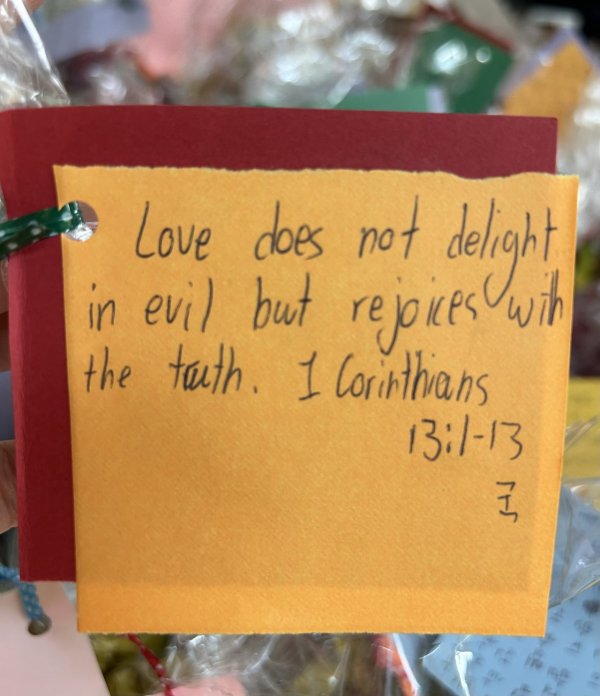 Love does not delight
in evil but rejoices with
the truth. I Corinthians
13:1-13